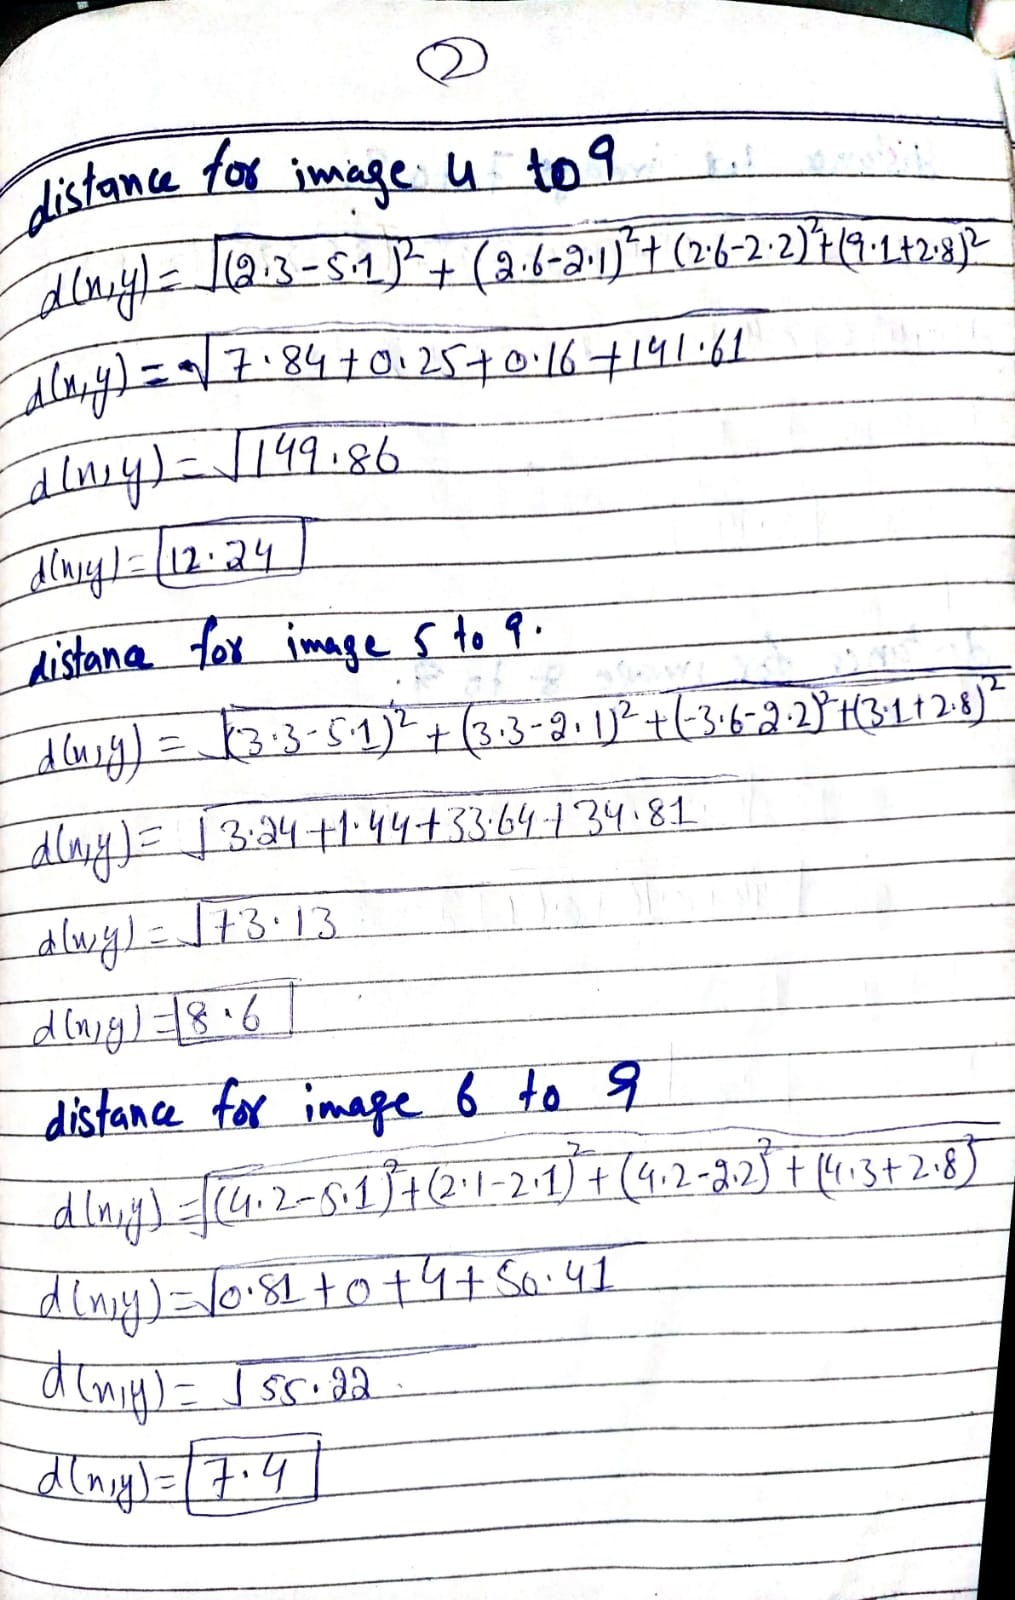 2
distance for image 4 to 9
d(n,y) = √(2.3-5.1)² + (2.6-2.1)² + (2.6-2.2)² + (9.1+2.8)²
d(n,y) = √7.84+0.25+0.16+141.61
d(n,y) = √149.86
d(n,y) = 12.24
distance for image 5 to 9.
d(n,y) = √(3.3-5.1)² + (3.3-2.1)² + (-3.6-2.2)² + (3.1+2.8)²
d(n,y) = √3.24+1.44+33.64+34.81
d(n,y) = √73.13
d(n,y) = 8.6
distance for image 6 to 9
d(n,y) = √(4.2-5.1)² + (2.1-2.1)² + (4.2-2.2)² + (4.3+2.8)²
d(n,y) = √0.81+0+4+50.41
d(n,y) = √55.22
d(n,y) = 7.4